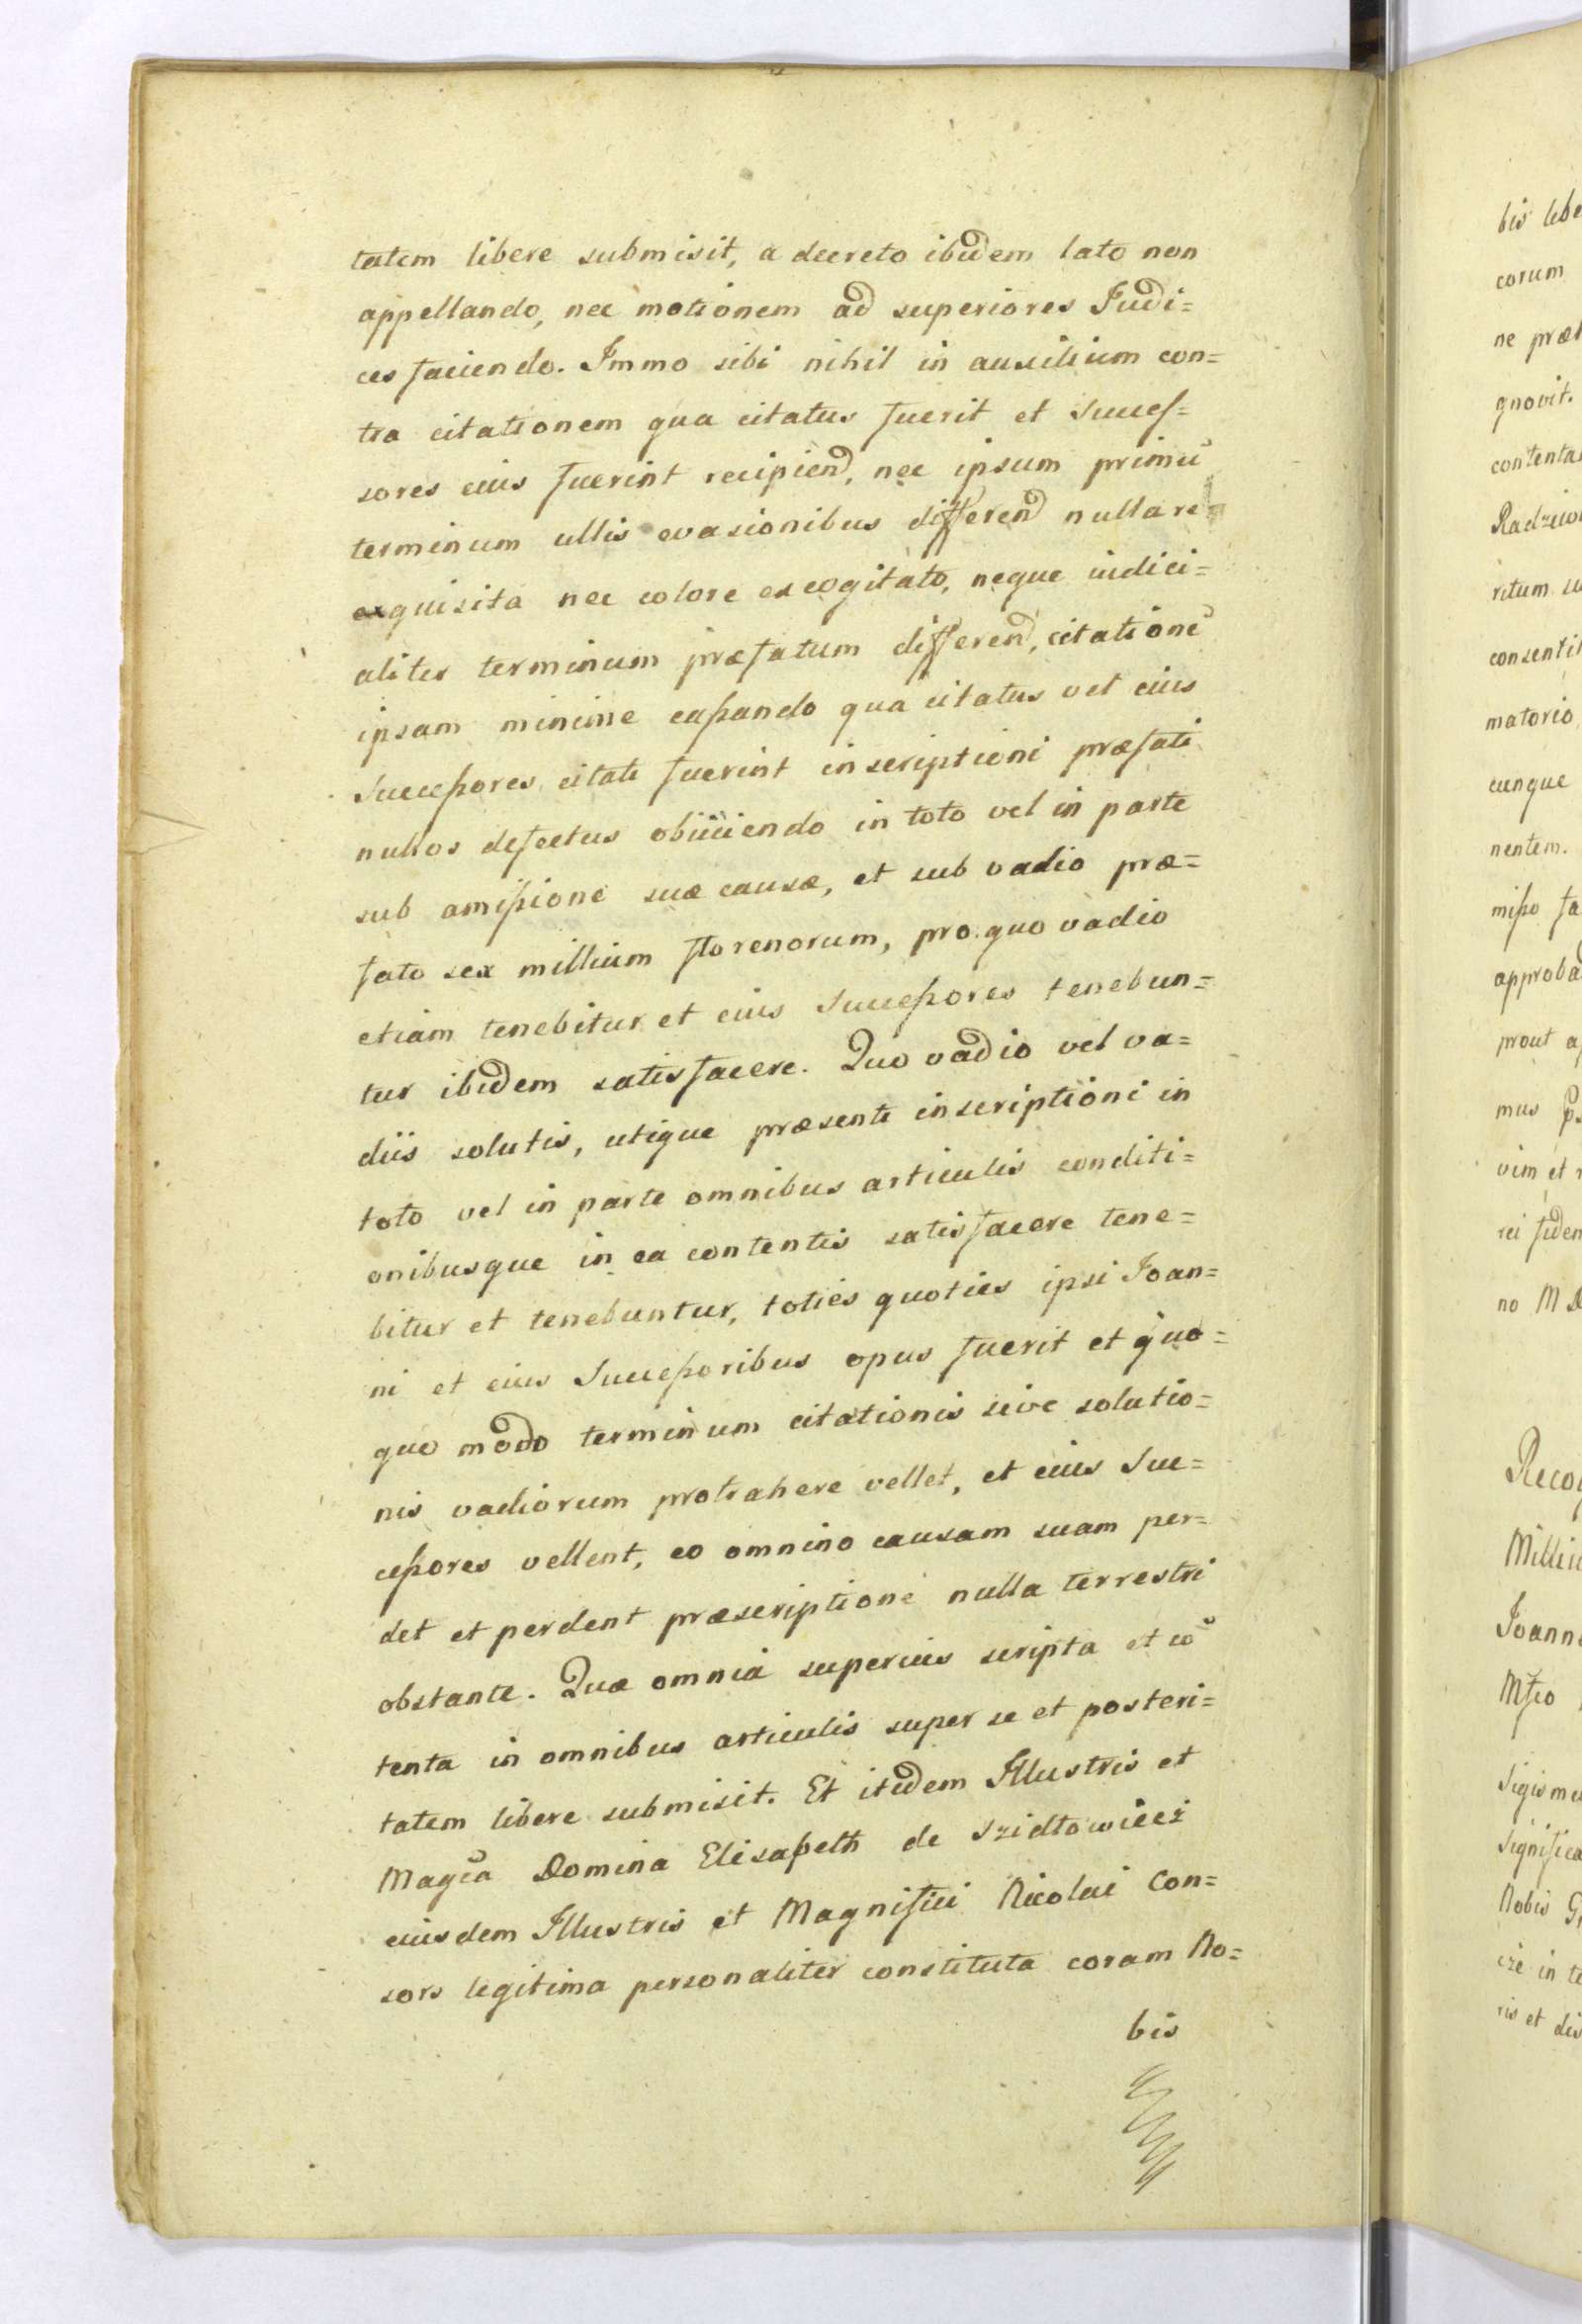 tatem libere submisit, a decreto ibidem lato non
appellando, nec motionem ad superiores Judi=
ces faciendo. Immo sibi nihil in auxilium con=
tra citationem qua citatus fuerit et Succeſ=
sores eius fuerint recipiend, nec ipsum primū
terminum ullis evasionibus differend nulla re
exquisita nec colore excogitato, neque iudici=
aliter terminum præfatum differend, citationē
ipsam minime caßando qua citatus vel eius
Succeßores citati fuerint inscriptioni præfati
nullos defectus obiiciendo in toto vel in parte
sub amißione suæ causæ, et sub vadio præ=
fato sex millium florenorum, pro quo vadio
etiam tenebitur et eius Succeßores tenebun=
tur ibidem satisfacere. Quo vadio vel va=
diis solutis, utique præsenti inscriptioni in
toto vel in parte omnibus articulis conditi=
onibusque in ea contentis satisfacere tene=
bitur et tenebuntur, toties quoties ipsi Joan=
ni et eius Succeßoribus opus fuerit et quo=
quo modo terminum citationis sive solutio=
nis vadiorum protrahere vellet, et eius Suc=
ceßores vellent, eo omnino causam suam per=
det et perdent præscriptione nulla terrestri
obstante. Quæ omnia superius scripta et cō
tenta in omnibus articulis super se et posteri=
tatem libere submisit. Et itidem Illustris et
Magca Domina Elisabeth de Szidłowiecz
eiusdem Illustris et Magnifici Nicolai Con=
sors legitima personaliter constituta coram No=
bis
bis libe
corum
ne præ
gnovit.
contenta
Radziw
ritum
consenti
matorio
cunque
nentem.
mißo fa
approba
prout a
mus
vim et
rei fiden
no M
Reco
Milli
Joann
Mfco
Sigism
Significa
Nobis G
cze in te
ris et dis